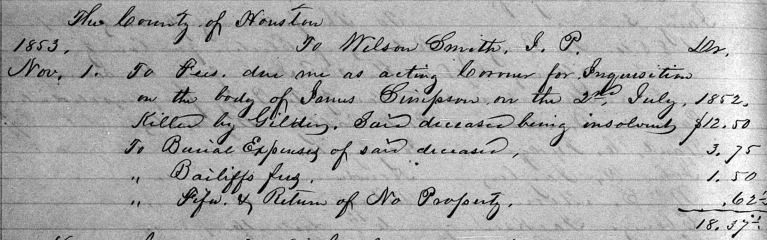 The County of Houston
1853. To Wilson Smith, J. P. Dr.
Nov. 1. To Fees. due me as acting Coroner for Inquisition
on the body of James Simpson on the 2nd July, 1852.
Killed by Gilden. Said deceased being insolvent $12.50
To Burial Expenses of said deceased, 3.75
" Bailiffs fees. 1.50
" Fifa. & Return of No Property. .62½
18.37½